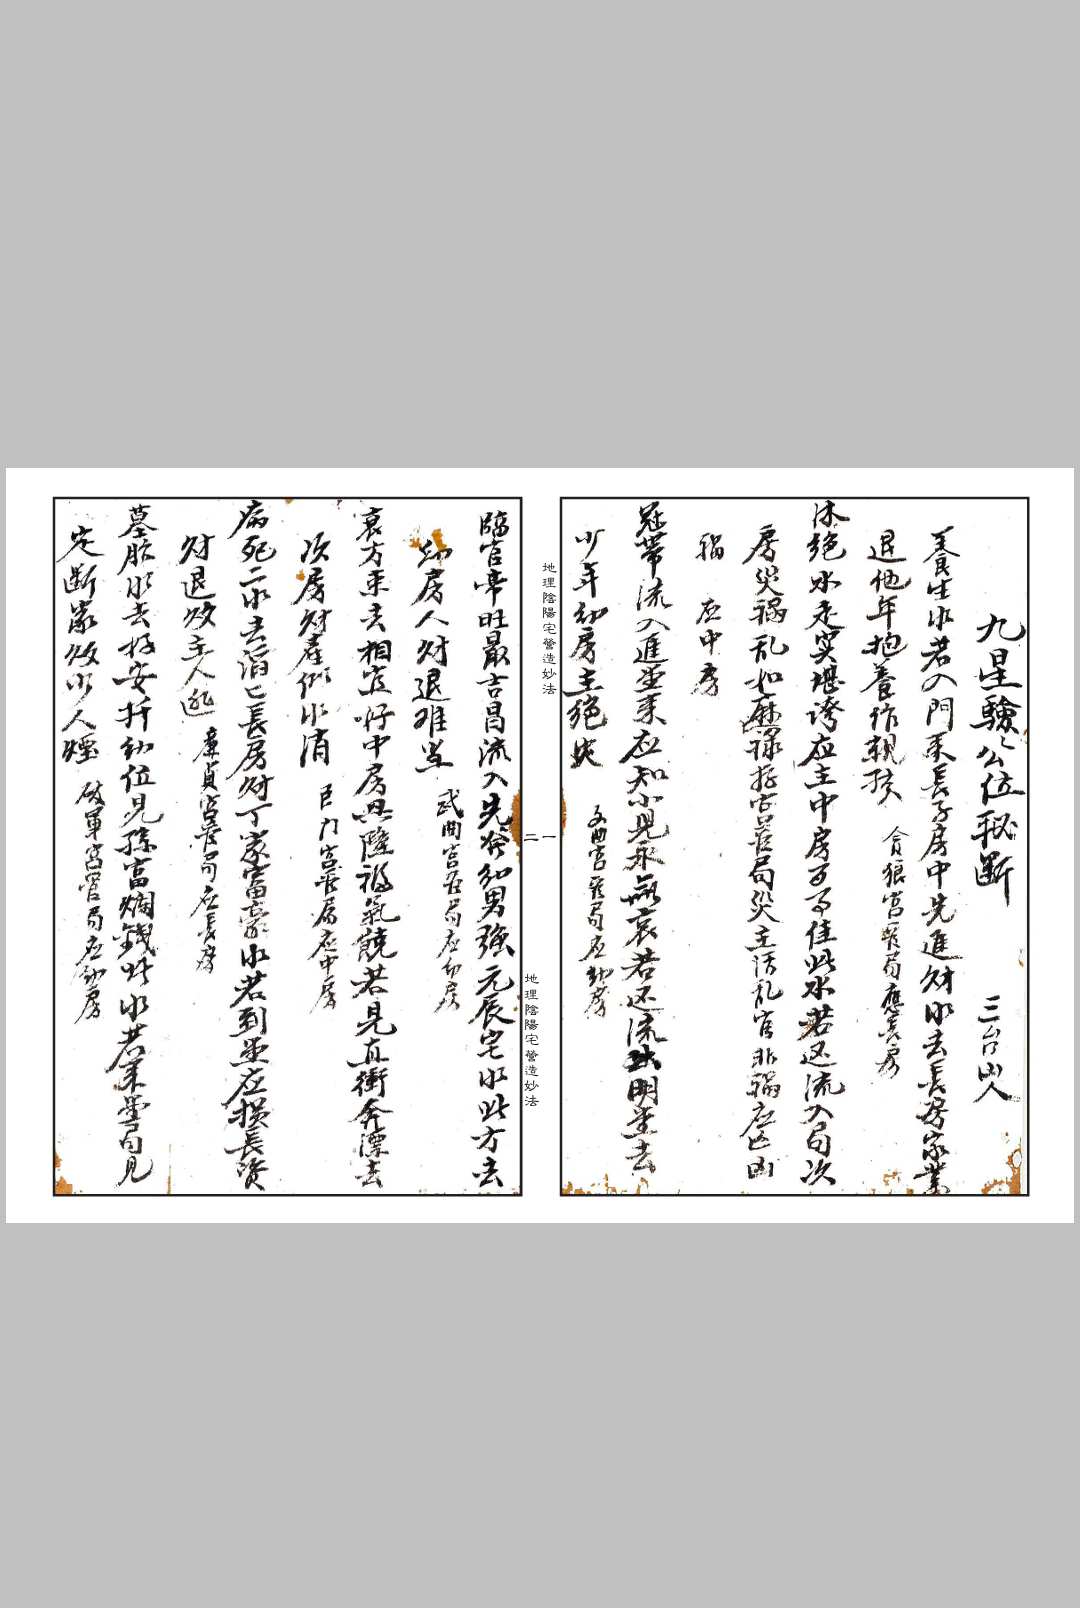 九星驗公位秘断 三台山人
養生水若入門来長子房中先進財水去長房家業
退他年抱養作親孩 貪狼宮管局應長房
沐絕水走实堪誇应主中房百事佳此水若还流入局次
房災禍乱如麻祿存宮管局災主活乱官非禍应凶
禍 应中房
冠带流入進並来应知小児永無哀若还流明堂去
少年幼房主绝 文曲宮管局应幼房
一
地理陰陽宅營造妙法
臨官帝旺最吉昌流入先發幼男强元辰宅水此方去
幼房人财退难当 武曲宮管局应幼房
衰方来去相宜好中房興隆福氣饒若見直衝奔漂去
次房财産似水消 巨门宮管局应中房
病死二水去滔已長房财丁家富豪水若到堂应损長
财退敗主人逃 廉貞宮管局应長房
墓胎水去好安扦幼位児孫富爛錢此水若来局見
定断家敗少人煙 破軍宮管局应幼房
二
地理陰陽宅營造妙法